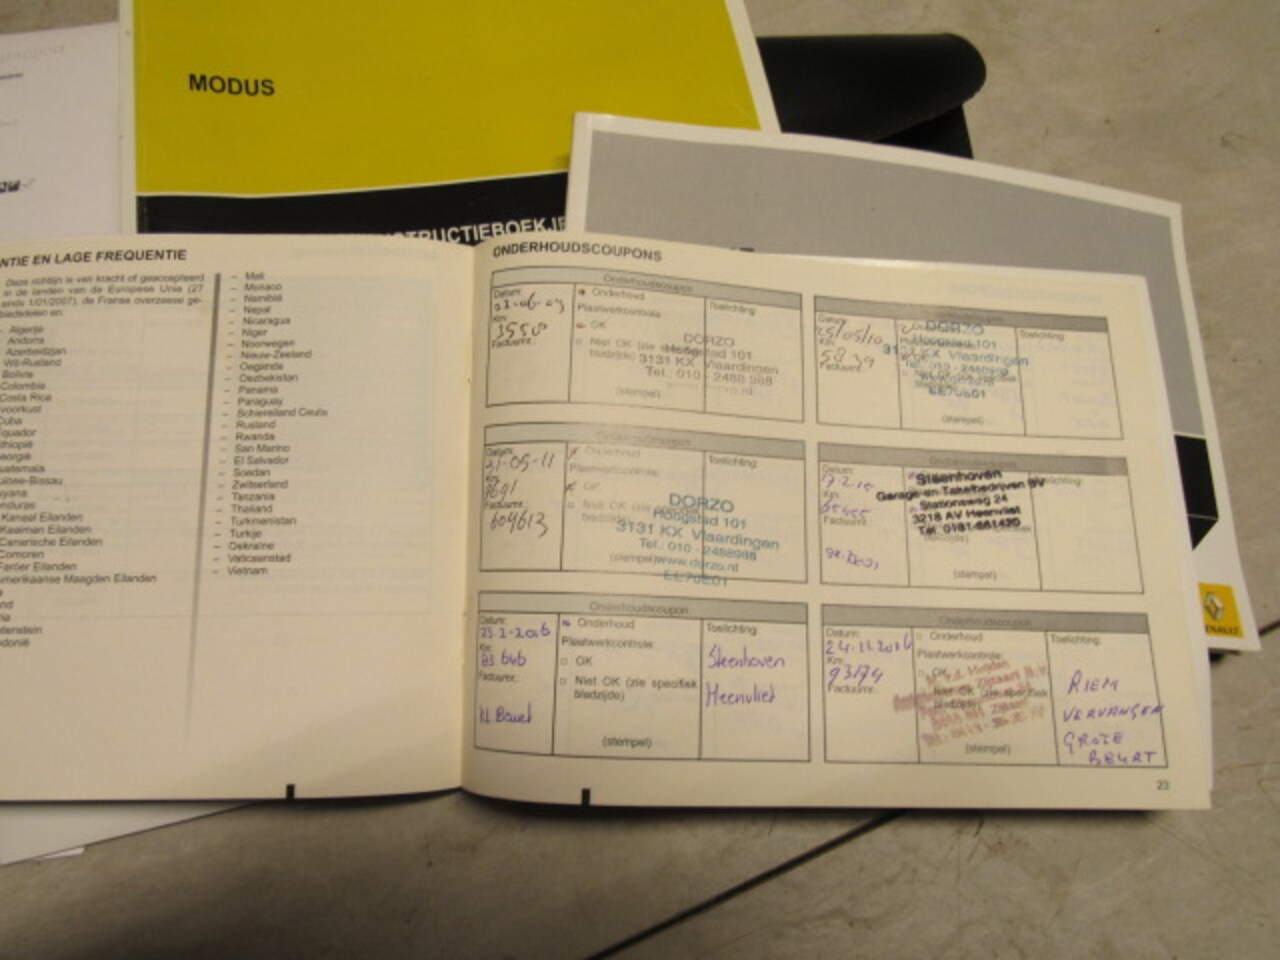 MODUS
NSTRUCTIEBOEKJE
NTIE EN LAGE FREQUENTIE
Deze richtlijn is van kracht of geaccepteerd
in de landen van de Europese Unie (27
sinds 1/01/2007), de Franse overzeese ge-
biedsdelen en:
– Algerije
Andorra
Azerbeidzjan
Wit-Rusland
Bolivia
Colombia
Costa Rica
voorkust
Cuba
quador
thiopië
eorgië
uatemala
uinee-Bissau
uyana
nduras
Kanaal Eilanden
Kaaiman Eilanden
Canarische Eilanden
Comoren
Faröer Eilanden
merikaanse Maagden Eilanden
nd
ria
htenstein
edonië
– Mali
– Monaco
– Namibië
– Nepal
– Nicaragua
– Niger
– Noorwegen
– Nieuw-Zeeland
– Oeganda
– Oezbekistan
– Panama
– Paraguay
– Schiereiland Ceuta
– Rusland
– Rwanda
– San Marino
– El Salvador
– Soedan
– Zwitserland
– Tanzania
– Thailand
– Turkmenistan
– Turkije
– Oekraïne
– Vaticaanstad
– Vietnam
ONDERHOUDSCOUPONS
Onderhoudscoupon
Datum:
Km:
3550
Factuurnr.:
Onderhoud
Plaatwerkcontrole:
OK
Niet OK (zie
bledzijde)
(stempel)
Toelichting:
DORZO
Hoogstad 101
3131 KX Vlaardingen
Tel.: 010 - 2488 988
Datum:
25/05/10
Km:
5839
Factuurnr.:
Toelichting:
DORZO
Hoogstad 101
3131 KX Vlaardingen
Tel.: 010 - 2488988
EE70E01
(stempel)
Onderhoudscoupon
Datum:
31-05-11
Km:
7691
Factuurnr.:
604613
Onderhoud
Plaatwerkcontrole:
OK
Niet OK
(stempel)
Toelichting:
DORZO
Hoogstad 101
3131 KX Vlaardingen
Tel.: 010 - 2488988
www.dorzo.nl
EE70E01
Datum:
Km:
Factuurnr.:
Steenhoven
Garage en Takelbedrijven BV
Stationsweg 24
3218 AV Heenvliet
Tel. 0181-661420
(stempel)
Onderhoudscoupon
Datum:
23-2-2016
Km:
83.646
Factuurnr.:
Onderhoud
Plaatwerkcontrole:
OK
Niet OK (zie specifiek
bledzijde)
(stempel)
Toelichting:
Steenhoven
Heenvliet
Onderhoudscoupon
Datum:
24-11-2016
Km:
93174
Factuurnr.:
Onderhoud
Plaatwerkcontrole:
OK
Niet OK (zie specifiek
bledzijde)
(stempel)
Toelichting:
RIEM
VERVANGEN
GROTE
BEURT
23
ENAULT